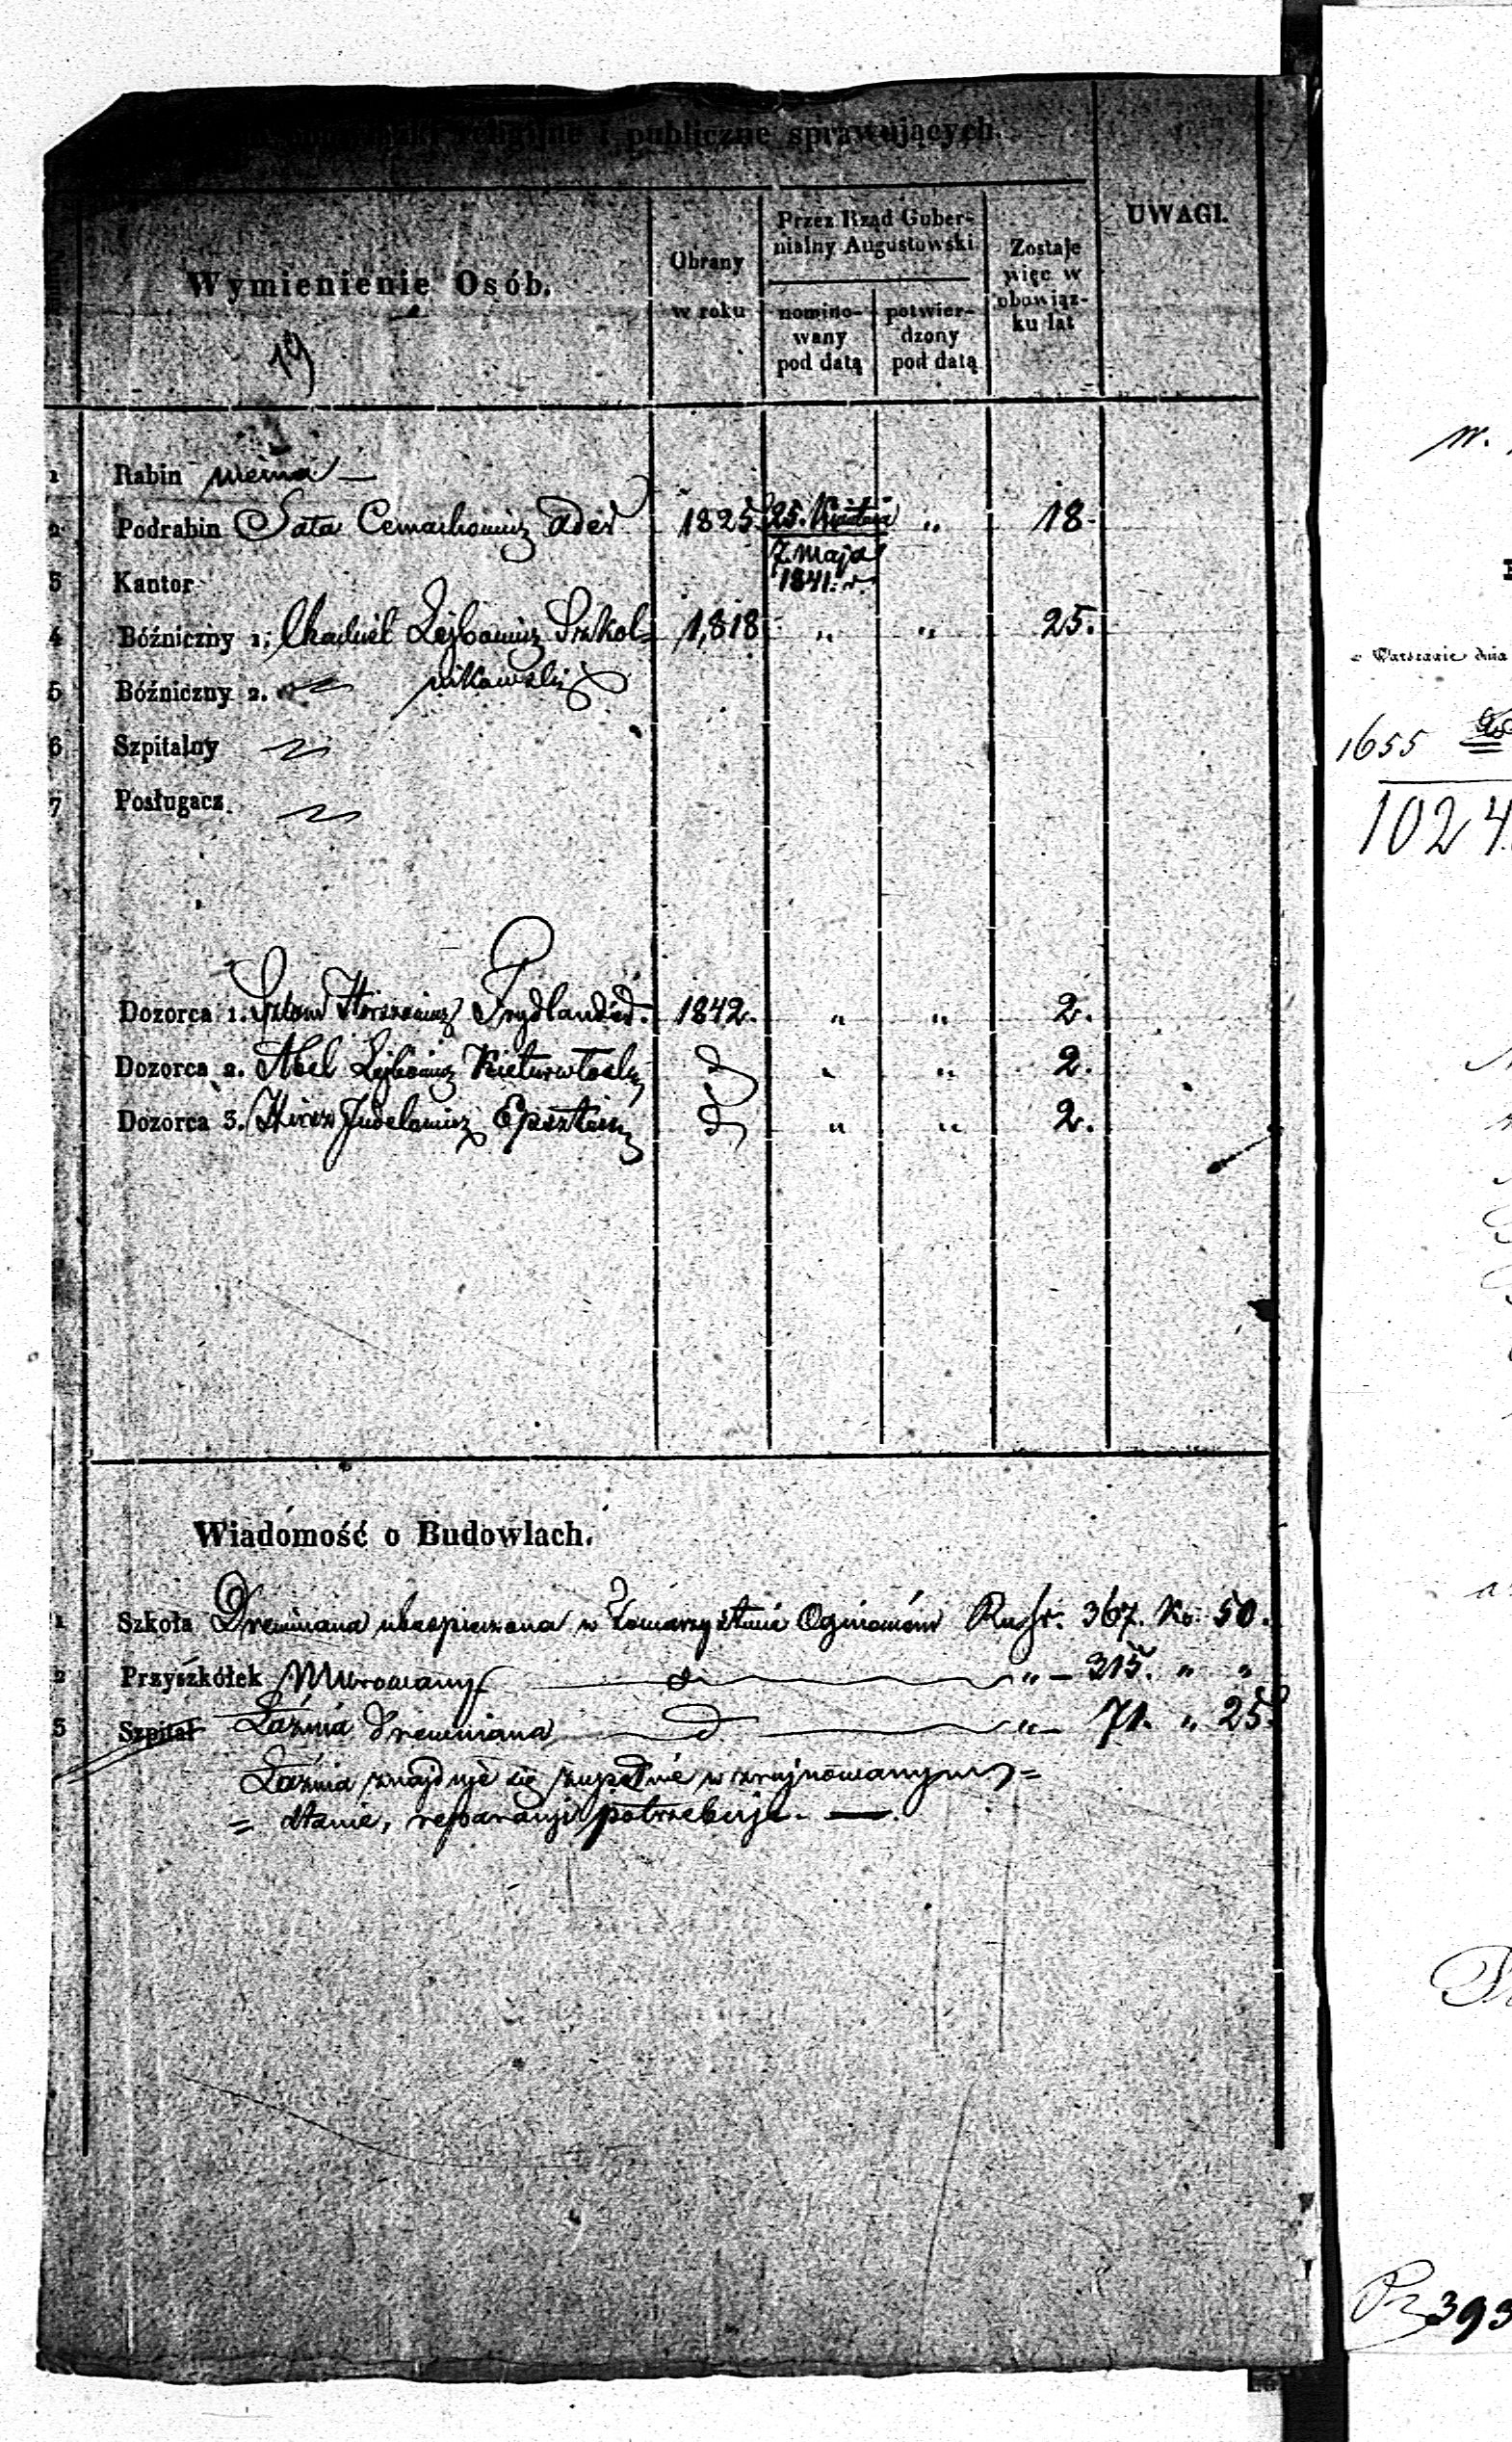 religijne i publiczne sprawujących.
Wymienienie Osób.
Obrany
w roku
Przez Rząd Guber-
nialny Augustowski
nomino-
wany
pod datą
potwier-
dzony
pod datą
Zostaje
więc w
obowiąz-
ku lat
UWAGI.
19
1 Rabin niema —
2 Podrabin Cemachowicz Ades 1825. 25. Kwietnia „ 18.
7 Maja
1841. r.
3 Kantor
4 Bóźniczny 1; Lejbowicz Szkol= 1,818 „ „ 25.
nikowski
5 Bóźniczny 2.
6 Szpitalny
7 Posługacz
Dozorca 1. Hirszowicz Frydlander. 1842. „ „ 2.
Dozorca 2. Abel Lejbowicz „ „ 2.
Dozorca 3. Hirsz Judelowicz Epsztein „ „ 2.
Wiadomość o Budowlach.
1 Szkoła Drewniana ubespieczona w Towarzystwie Ogniowém Rusr. 367. Ko. 50.
2 Przyszkółek Murowany „ — 315. „ „
3 Szpital Łaźnia drewniana „ — 71. „ 25.
Łaźnia znajduje się zupełnie w zrujnowanym =
= stanie, reparacyi potrzebuje. —
w Warszawie dnia
1655
1024
393